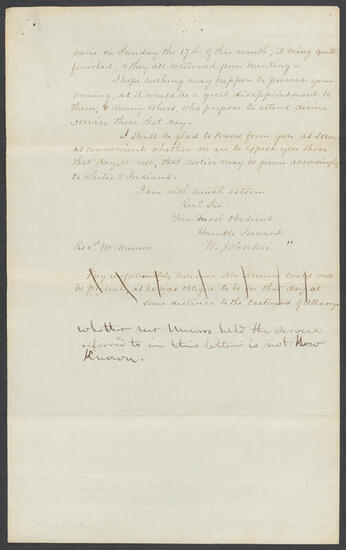 here on Sunday the 17th of this month, it being quite
finished, & they all returned from hunting –
I hope nothing may happen to prevent your
coming, as it would be a great disappointment to
them, & many others, who propose to attend divine
service there that day.
I shall be glad to know from you as soon
as convenient whether we are to expect you there
that day, or not, that notice may be given accordingly
to whites & Indians.
I am with much esteem
Revd. Sir
Your Most Obedient
Humble Servant
Revd. Mr Munro. W. Johnson "
however Mr Munro could not
be present as he was obliged to be on that day at
some distance to the eastward of Albany
whether mr Munro held the service
referred to in this letter is not now
Known.